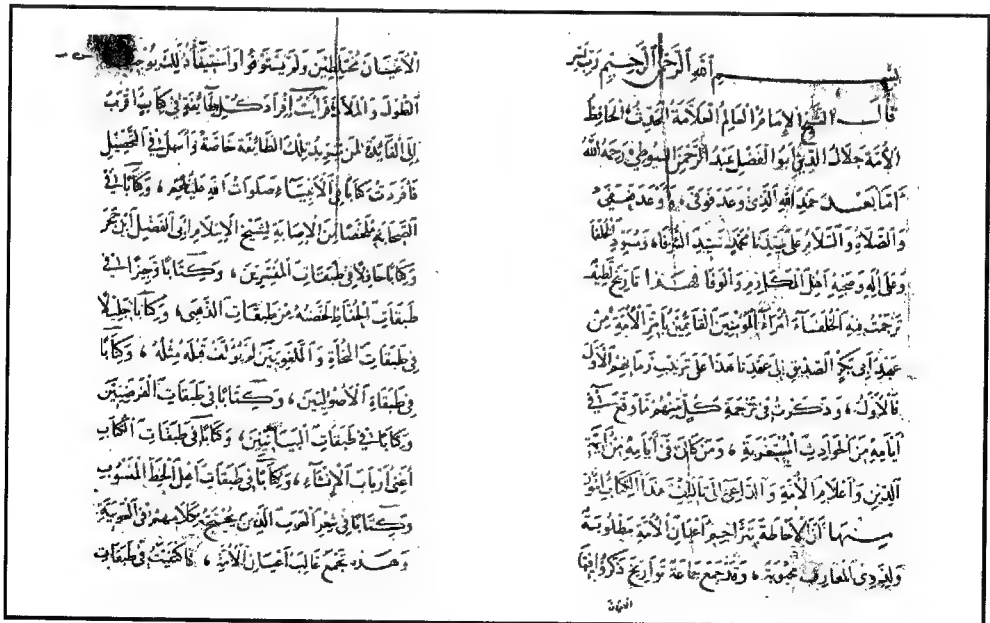 بسم الله الرحمن الرحيم رب يسر
قال الشيخ الإمام العالم العلامة الحديث الحافظ
الأمة جلال الدين أبو الفضل عبد الرحمن السيوطي رحمه الله
أما بعد حمد الله الذي وعد فوفى، وأوعد فعفى
والصلاة والسلام على سيدنا محمد سيد الشرفاء ومسود الخلفا
وعلى اله وصحبه اهل المكارم والوفا فهذا تاريخ لطيف
ترجمت فيه الخلفاء أمراء المؤمنين القائمين بأمر الأمة من
عهد أبي بكر الصديق إلى عهدنا هذا على ترتيب زمانهم الأول
فالأول، وذكرت في ترجمة كل منهم ما وقع في
أيامه من الحوادث المستغربة، ومن كان في أيامه من أئمة
الدين وأعلام الأمة والداعي إلى تاليف هذا الكتاب أمور
منها أن الإحاطة بتراجم أعيان الأمة مطلوبة
ولذوي المعارف محبوبة، وقد جمع جماعة تواريخ ذكروا فيها
الأعيان مختلطين ولم يستوفوا واستيفاء ذلك يوجب
الطول والملال فرأيت إفراد كل طائفة في كتاب أقرب
إلى الفائدة لمن يريد تلك الطائفة خاصة وأسهل في التحصيل
فأفردت كتابا في الأنبياء صلوات الله عليهم، وكتابا في
الصحابة ملخصا من الإصابة لشيخ الإسلام أبي الفضل ابن حجر
وكتابا حافلا في طبقات المفسرين، وكتابا وجيزا في
طبقات الحفاظ لخصته من طبقات الذهبي، وكتابا جليلا
في طبقات النحاة واللغويين لم يؤلف قبله مثله، وكتابا
في طبقات الأصوليين، وكتابا في طبقات الفرضيين
وكتابا في طبقات البيانيين، وكتابا في طبقات الكتاب
أعني أرباب الإنشاء، وكتابا في طبقات اهل الخط المنسوب
وكتابا في شعر العرب الذين يحتج بكلامهم في العربية
وهذه تجمع غالب أعيان الأمة، فاكتفيت في طبقات